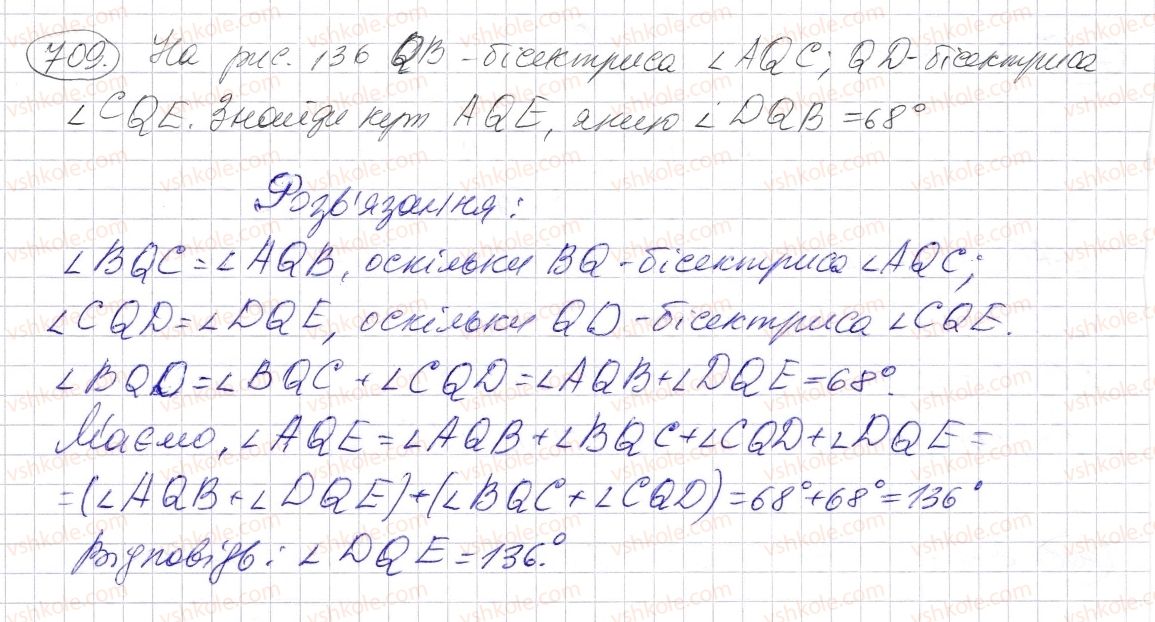 709. На рис. 136 QB - бісектриса ∠AQC; QD - бісектриса
∠CQE. Знайди кут AQE, якщо ∠DQB = 68°
Розв'язання:
∠BQC = ∠AQB, оскільки BQ - бісектриса ∠AQC;
∠CQD = ∠DQE, оскільки QD - бісектриса ∠CQE.
∠BQD = ∠BQC + ∠CQD = ∠AQB + ∠DQE = 68°.
Маємо, ∠AQE = ∠AQB + ∠BQC + ∠CQD + ∠DQE =
= (∠AQB + ∠DQE) + (∠BQC + ∠CQD) = 68° + 68° = 136°
Відповідь: ∠DQE = 136°.